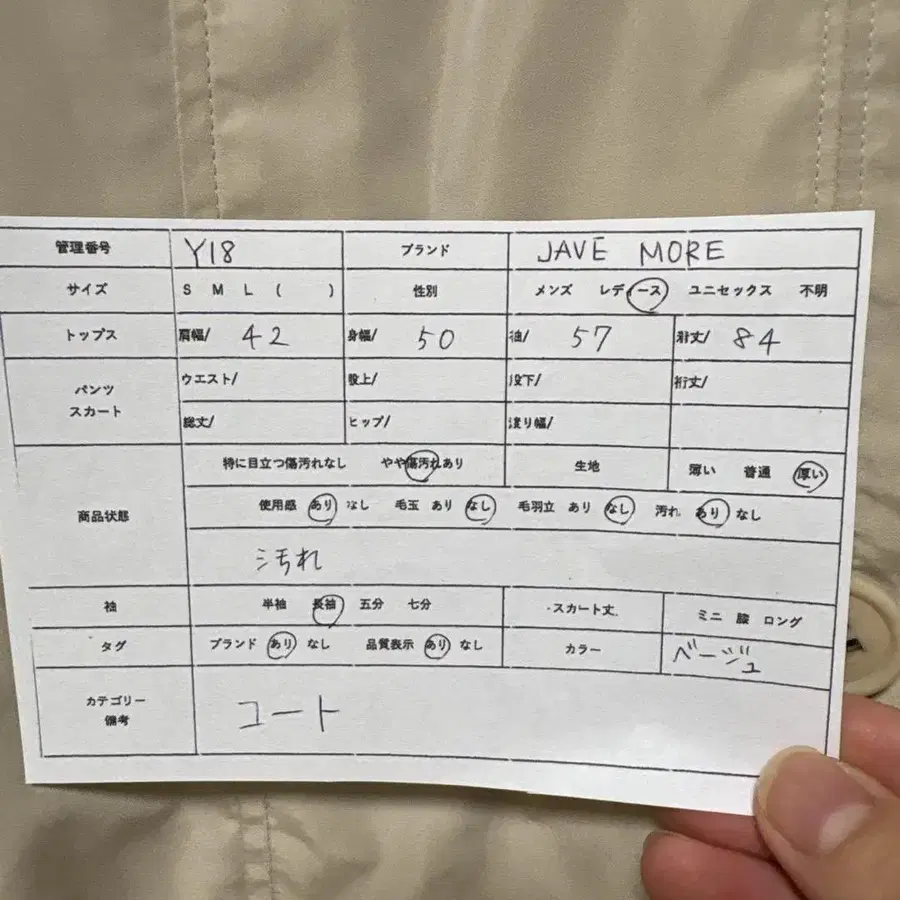 管理番号 Y18 ブランド JAVE MORE
サイズ S M L ( ) 性別 メンズ レディース ユニセックス 不明
トップス 肩幅/ 42 身幅/ 50 袖/ 57 着丈/ 84
パンツ スカート ウエスト/ 股上/ 股下/ 裄丈/
総丈/ ヒップ/ 渡り幅/
特に目立つ傷汚れなし やや傷汚れあり 生地 薄い 普通 厚い
商品状態 使用感 あり なし 毛玉 あり なし 毛羽立 あり なし 汚れ あり なし
汚れ
袖 半袖 長袖 五分 七分 スカート丈 ミニ 膝 ロング
タグ ブランド あり なし 品質表示 あり なし カラー ベージュ
カテゴリー 備考 コート